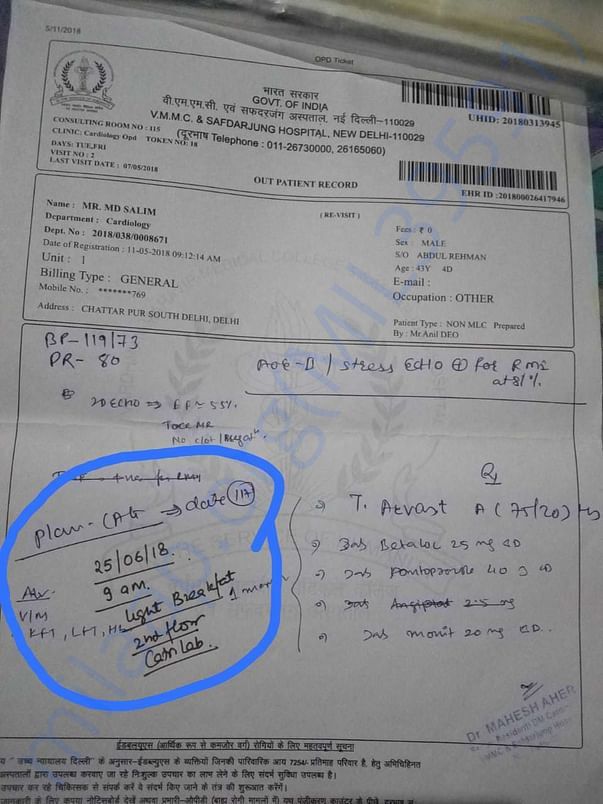 5/11/2018
OPD Ticket
भारत सरकार
GOVT. OF INDIA
वी.एम.एम.सी. एवं सफदरजंग अस्पताल, नई दिल्ली-110029
V.M.M.C. & SAFDARJUNG HOSPITAL, NEW DELHI-110029
(दूरभाष Telephone : 011-26730000, 26165060)
UHID: 20180313945
CONSULTING ROOM NO : 115
CLINIC: Cardiology Opd TOKEN NO: 18
DAYS: TUE,FRI
VISIT NO : 2
LAST VISIT DATE : 07/05/2018
OUT PATIENT RECORD
EHR ID :201800026417946
Name : MR. MD SALIM
Department : Cardiology
Dept. No : 2018/038/0008671
Date of Registration : 11-05-2018 09:12:14 AM
Unit : 1
Billing Type : GENERAL
Mobile No. : *******769
Address : CHATTAR PUR SOUTH DELHI, DELHI
( RE-VISIT )
Fees : ₹ 0
Sex : MALE
S/O ABDUL REHMAN
Age : 43Y 4D
E-mail :
Occupation : OTHER
Patient Type : NON MLC Prepared
By : Mr.Anil DEO
BP-119/73
PR- 80
AOE-II / stress ECHO + for RMI
at 81%.
2D ECHO ⇒ EF ≈ 55%.
Trace MR
No clot /
Plan- CAG ⇒ date 117
25/06/18.
9 am.
light Breakfast
2nd floor
Cath lab.
Adv.
V/M
KFT, LFT,
1 month
Rx
T. Aevast A (75/20) HS
Tab Betaloc 25 mg OD
Tab Pantoprazole 40 OD
Tab Angiplat 2.5 mg
Tab monit 20 mg
Dr MAHESH AHER
ईडबल्यूएस (आर्थिक रूप से कमजोर वर्ग) रोगियों के लिए महत्वपूर्ण सूचना
उच्च न्यायालय दिल्ली" के अनुसार-ईडबल्यूएस के व्यक्तियों जिनकी पारिवारिक आय 7254/- प्रतिमाह परिवार है, हेतु अभिचिहित
अस्पतालों द्वारा उपलब्ध करवाए जा रहे निःशुल्क उपचार का लाभ लेने के लिए संदर्भ सुविधा उपलब्ध है।
उपचार कर रहे चिकित्सक से संपर्क करें वे संदर्भ किए जाने के तंत्र की शुरुआत करेंगें।